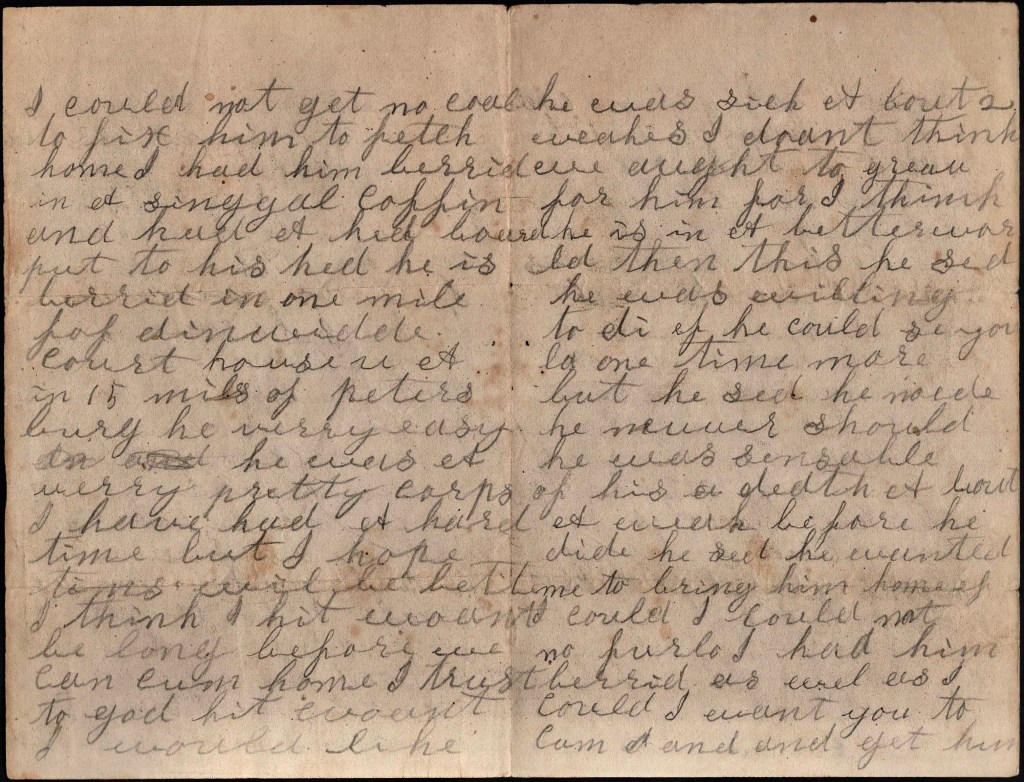 I could not get no coal
to fix him to fetch
home I had him berrid
in et singgal Coffin
and had et hed board
put to his hed he is
berrid in one mile
fof dinwidde
Court house u et
in 15 mils of peters
burg he verry easy
he was et
verry pretty Corps
I have had et hard
time but I hope
tims wil be bett
I think I hit woant
be long before we
Can Cum home I trust
to god hit woant
I would like
he was sick et bout 2
weakes I doant think
we aught to greav
for him for I think
he is in et better wor
ld then this he sed
he was willing
to di ef he could se you
la one time more
but he sed he noede
he nevver should
he was sensable
of his a dedth et bout
et weak before he
dide he sed he wanted
me to bring him home ef
I could I could not
no furlo I had him
berrid as wel as I
Could I want you to
Cum and and get him